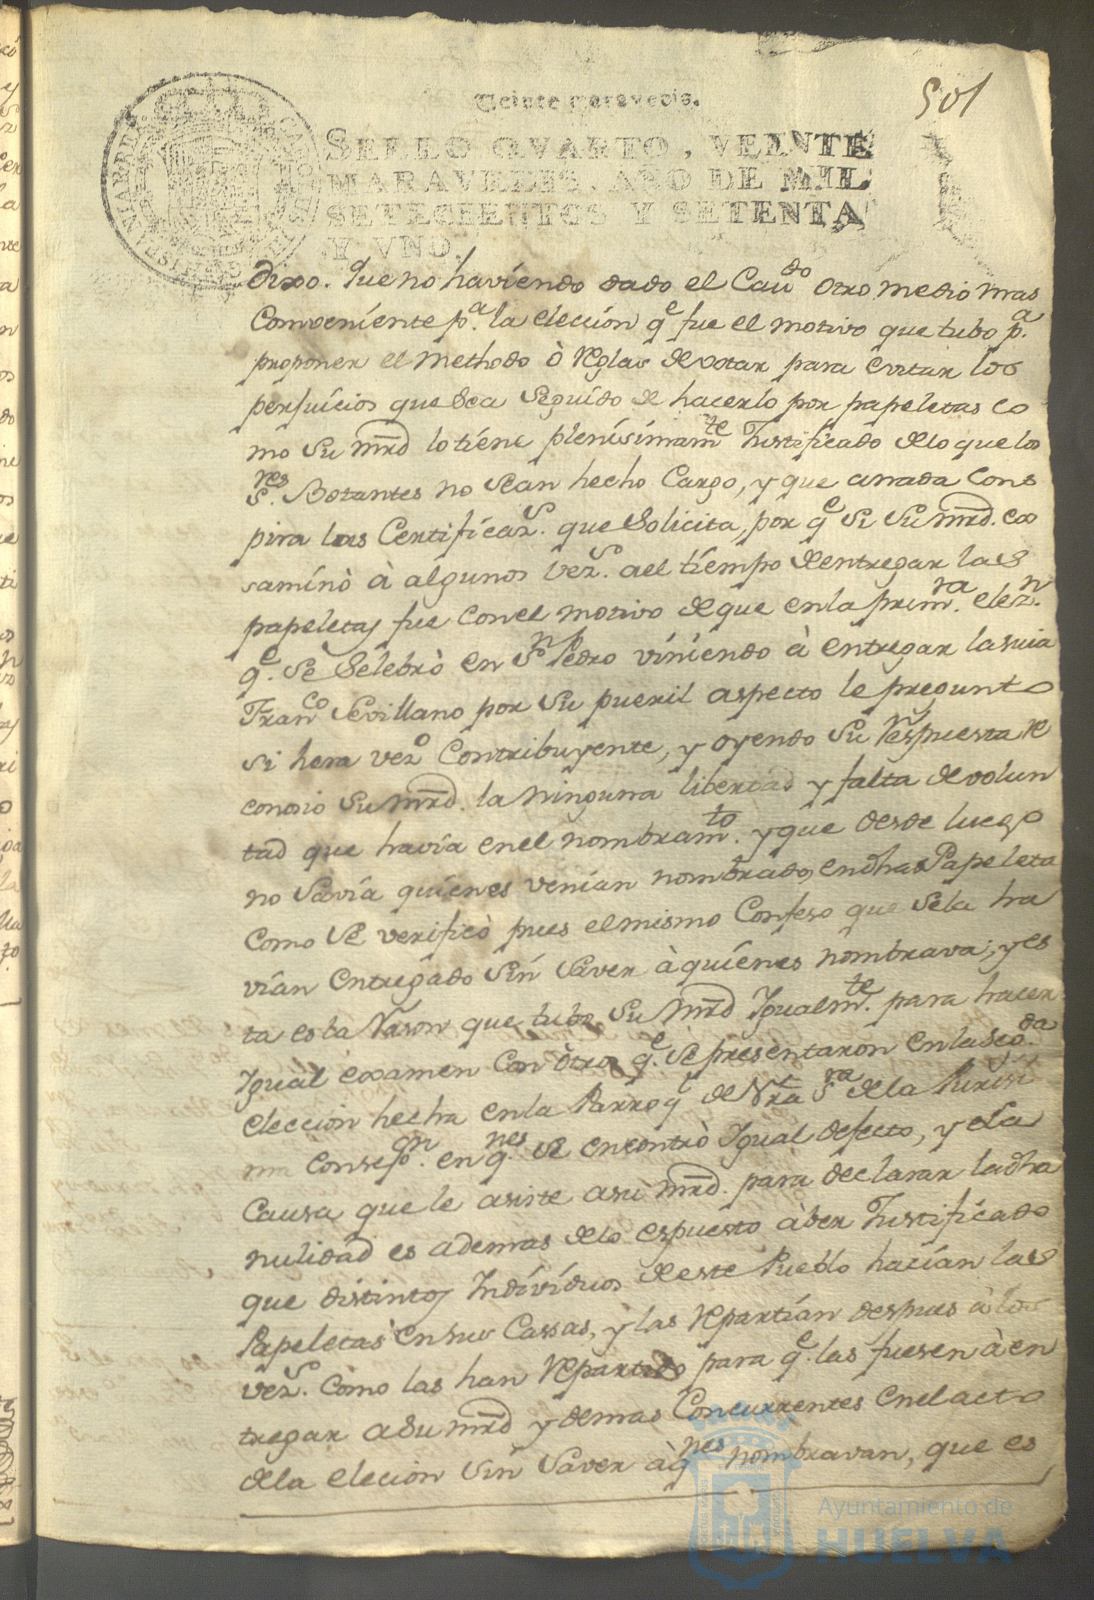 501
Veinte maravedis.
SELLO QVARTO, VEINTE
MARAVEDIS, AÑO DE MIL
SETECIENTOS Y SETENTA
Y VNO.
dixo. Que no haviendo dado el Caudo otro medio mas
Conveniente pa. la eleccion qe fue el motivo que tubo pa.
proponer el Methodo ò Reglas de votar para evitar los
perjuicios que sea seguido de hacerlo por papeletas co
mo su mrd lo tiene plenisimamte Justificado de lo que los
Sres. Botantes no sean hecho Cargo, y que anada cons
pira las Certificazs. que Solicita, por qe si su mrd. ex
saminò à algunos vezs. ael tiempo de entregar las
papeletas fue con el motivo de que en la primra. elezn.
qe. se Selebrò en Sn Pedro viniendo à entregar la suia
Franco Sevillano por su pueril aspecto le pregunto
si hera vezo Contribuyente, y oyendo su Respuesta Re
conosio su mrd. la ninguna libertad y falta de volun
tad que havia en el nombramto. y que desde luego
no savia quienes venian nombrados en dhas Papeleta
Como se verificò pues el mismo Confeso que se la ha
vian entregado sin saver à quienes nombrava; y es
ta es la Rason que tubo su mrd Igualmte. para hacer
Igual examen con otros qe. se presentaron en la segda.
eleccion hecha en la Parroqa de Nra Sra de la Purisi
ma Consepn. en qnes. se encontrò Igual defecto, y la
Causa que le asiste asu mrd. para declarar la dha
nulidad es ademas de lo espuesto àber Justificado
que distintos Individuos de este Pueblo hacian las
Papeletas en sus Cassas, y las Repartian despues à los
vezs. como las han Repartido para qe. las fuesen à en
tregar a su mrd y demas Concurrentes en el acto
de la elecion sin saver à qnes nombravan, que es
Ayuntamiento de
HUELVA